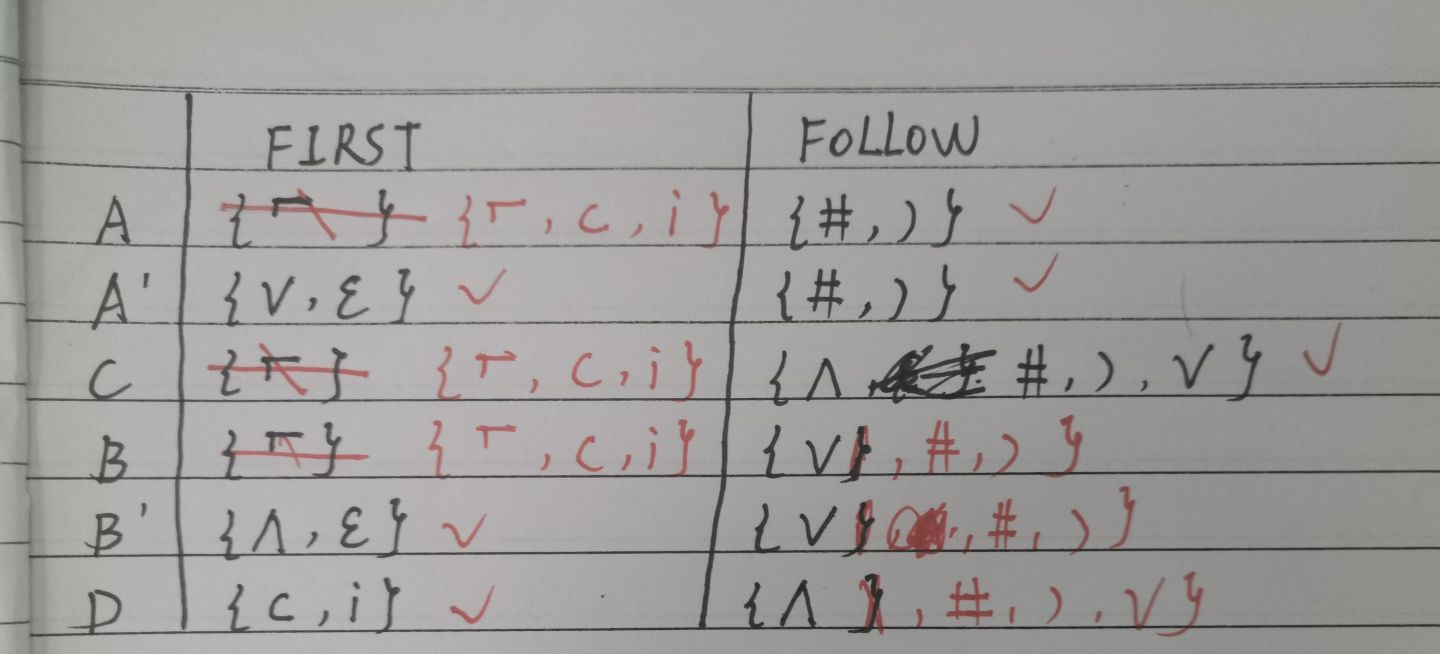 FIRST FOLLOW
A { ㄱ } {ㄱ, c, i} {#, )} ✓
A' {∨, ε} ✓ {#, )} ✓
C {ㄱ} {ㄱ, c, i} {∧, #, ), ∨} ✓
B {ㄱ} {ㄱ, c, i} {∨}, #, )}
B' {∧, ε} ✓ {∨}, #, )}
D {c, i} ✓ {∧}, #, ), ∨}